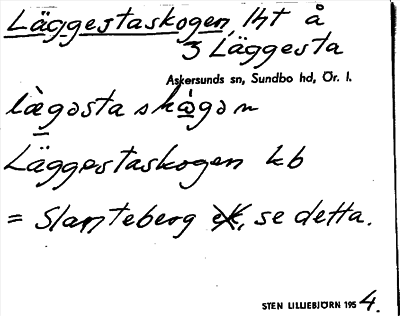 Läggestaskogen, lht å
3 Läggesta
Askersunds sn, Sundbo hd, Ör. l.
lägəsta skågən
Läggestaskogen kb
= Slanteberg ek, se detta.
STEN LILLIEBJÖRN 1954.